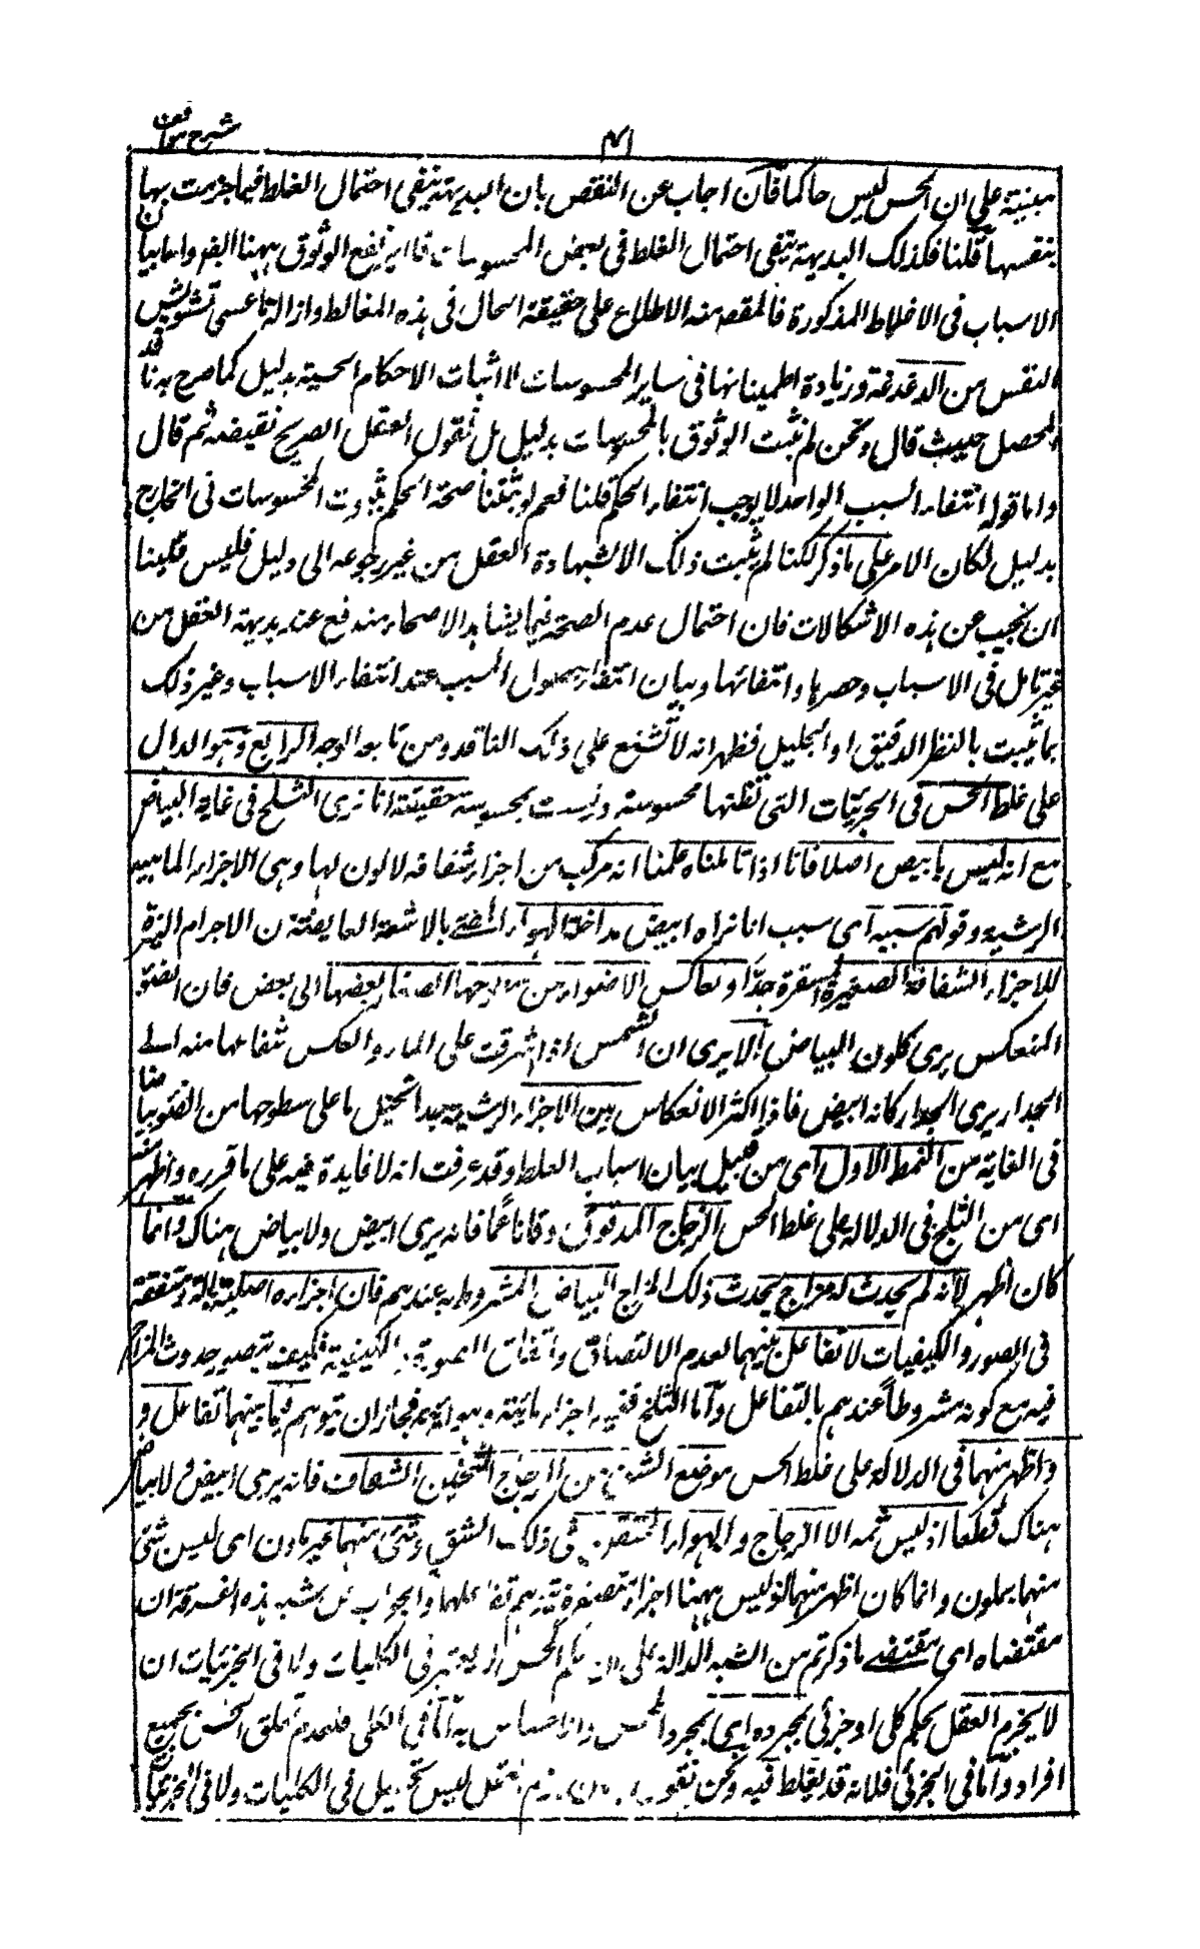 شرح مواقف
۴۱
مبنية على ان الحس ليس حاكما فان اجاب عن النقض بان البديهة تنفى احتمال الغلط فيما جزمت بها
بنفسها قلنا فكذلك البديهة تنفى احتمال الغلط فى بعض المحسوسات فلا يرتفع الوثوق ههنا ايضا واما بيان
الاسباب فى الاغلاط المذكورة فالمقصد منه الاطلاع على حقيقة الحال فى هذه المغالط وازالة ما عسى تشوش
النفس من الدغدغة وزيادة اطمينانها فى ساير المحسوسات لا اثبات الاحكام الحسية بدليل كما صرح به ناقد
المحصل حيث قال ونحن لم نثبت الوثوق بالمحسوسات بدليل بل نقول العقل الصريح نقيضه ثم قال
واما قوله انتفاء السبب الواحد لا يوجب انتفاء الحكم قلنا نعم لو اثبتنا صحة الحكم بثبوت المحسوسات فى الخارج
بدليل لكان الامر على ما ذكر لكنا لم نثبت ذلك الا بشهادة العقل من غير رجوعه الى دليل فليس علينا
ان نجيب عن هذه الاشكالات فان احتمال عدم الصحة فيما يشاهده الاصحاء مندفع عند بديهة العقل من
غير تامل فى الاسباب وحصرها وانتفائها وبيان انتفاء حصول المسبب عند انتفاء الاسباب وغير ذلك
مما يثبت بالنظر الدقيق او الجليل فظهر انه لا تشنع على ذلك الناقد ومن تابعه الوجه الرابع وهو الدال
على غلط الحس فى الجزئيات التى نظنها محسوسة وليست بمحسوسة حقيقة انا نرى الثلج فى غاية البياض
مع انه ليس بابيض اصلا فانا اذا تاملناه علمنا انه مركب من اجزاء شفافة لا لون لها وهى الاجزاء المائية
الرشية وقولهم سببه اى سبب انا نراه ابيض مداخلة الهواء المضئ بالاشعة الفايضة من الاجرام النيرة
للاجزاء الشفافة الصغيرة المتفرقة جدا وتعاكس الاضواء من سطوحها الصغار بعضها الى بعض فان الضوء
المنعكس يرى كلون البياض الا يرى ان الشمس اذا اشرقت على الماء وانعكس شعاعها منه الى
الجدار يرى الجدار كانه ابيض فاذا كثر الانعكاس بين الاجزاء الرشية جدا تخيل ما على سطوحها من الضوء بياضا
فى الغاية من النمط الاول اى من قبيل بيان اسباب الغلط وقد عرفت انه لا فايدة فيه على ما قرره واظهر منه
اى من الثلج فى الدلالة على غلط الحس الزجاج المدقوق دقا ناعما فانه يرى ابيض ولا بياض هناك وانما
كان اظهر لانه لم يحدث له مزاج يحدث ذلك المزاج البياض المشروط به عندهم فان اجزاءه صلبة يابسة متفقة
فى الصور والكيفيات لا تفاعل بينهما لعدم الالتصاق واتفاق الصورة والكيفية فكيف يتصور حدوث المزاج
فيه مع كونه مشروطا عندهم بالتفاعل واما الثلج ففيه اجزاء مائية وهوائية فجاز ان يتوهم فيما بينهما تفاعل و
واظهر منهما فى الدلالة على غلط الحس موضع الشق من الزجاج الثخين الشفاف فانه يرى ابيض ولا بياض
هناك قطعا اذ ليس ثمه الا الزجاج والهواء المحتقن فى ذلك الشق وشئ منهما غير ملون اى ليس شئ
منهما بملون وانما كان اظهر منهما اذ ليس ههنا اجزاء متصغرة يتوهم تفاعلها والجواب عن شبه هذه الفرقة ان
مقتضاه اى مقتضى ما ذكرتم من الشبه الدالة على ان حكم الحس لا يعتبر فى الكليات ولا فى الجزئيات ان
لا يجزم العقل بحكم كلى او جزئى بمجرده اى بمجرد الحس والاحساس به اما فى الكلى فلعدم تعلق الحس بجميع
افراده واما فى الجزئى فلانه قد يغلط فيه ونحن نقول به فان جزم العقل ليس يحصل فى الكليات ولا فى الجزئيات